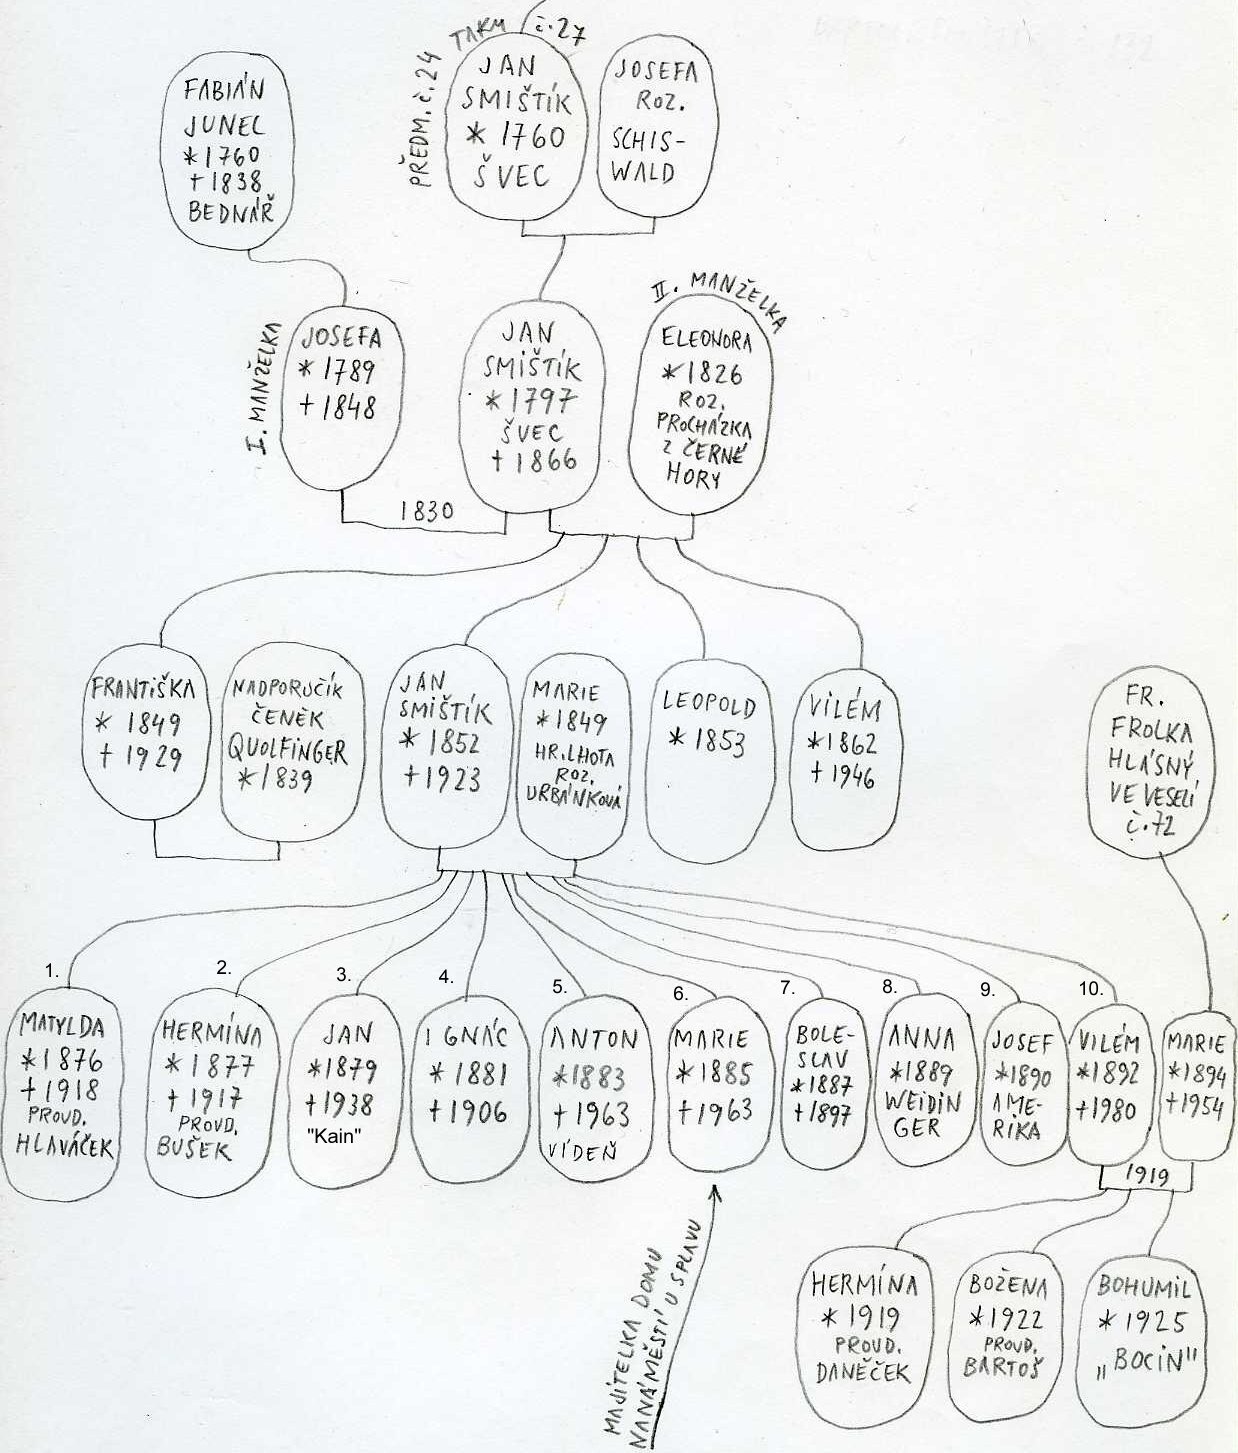 TAKM č.27
PŘEDM. č.24
FABIÁN
JUNEL
*1760
+1838
BEDNÁŘ
JAN
SMIŠTÍK
* 1760
ŠVEC
JOSEFA
ROZ.
SCHIS-
WALD
I. MANŽELKA
JOSEFA
* 1789
+ 1848
JAN
SMIŠTÍK
* 1797
ŠVEC
+ 1866
II. MANŽELKA
ELEONORA
*1826
ROZ.
PROCHÁZKA
Z ČERNÉ
HORY
1830
FRANTIŠKA
* 1849
+ 1929
NADPORUČÍK
ČENĚK
QUOLFINGER
*1839
JAN
SMIŠTÍK
* 1852
+1923
MARIE
*1849
HR.LHOTA
ROZ.
URBÁNKOVÁ
LEOPOLD
* 1853
VILÉM
*1862
+1946
FR.
FROLKA
HLÁSNÝ
VE VESELÍ
č.72
1.
MATYLDA
*1876
+1918
PROVD.
HLAVÁČEK
2.
HERMÍNA
*1877
+1917
PROVD.
BUŠEK
3.
JAN
*1879
+1938
"Kain"
4.
IGNÁC
*1881
+1906
5.
ANTON
*1883
+1963
VÍDEŇ
6.
MARIE
*1885
+1963
7.
BOLE-
SLAV
*1887
+1897
8.
ANNA
*1889
WEIDIN
GER
9.
JOSEF
*1890
AME-
RIKA
10.
VILÉM
*1892
+1980
MARIE
*1894
+1954
1919
MAJITELKA DOMU
NA NÁMĚSTÍ U SPLAVU
HERMÍNA
* 1919
PROVD.
DANĚČEK
BOŽENA
*1922
PROVD.
BARTOŠ
BOHUMIL
* 1925
„BOCIN"